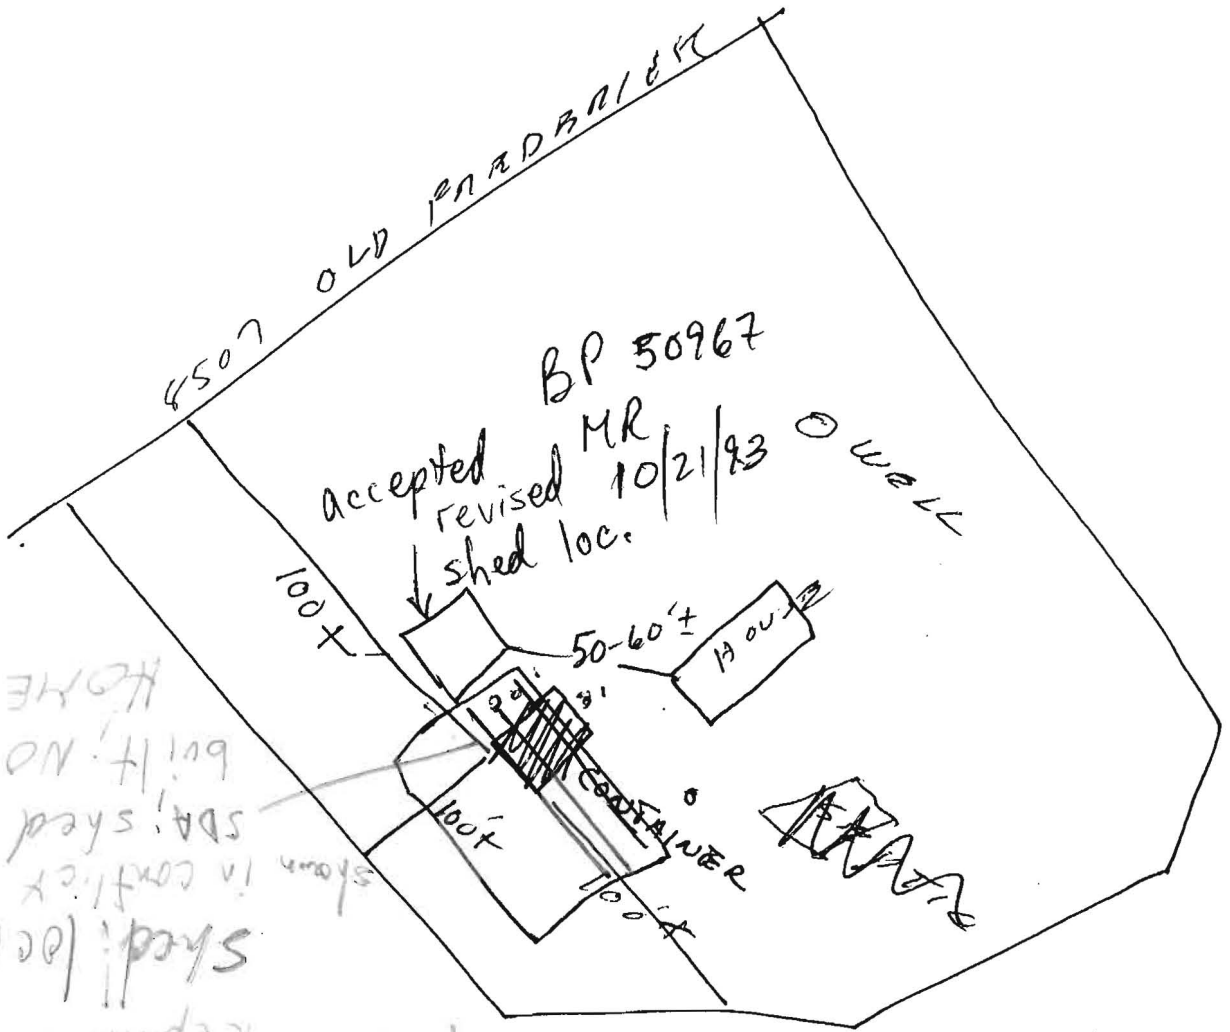 8507 OLD
BP 50967
MR
10/21/93
accepted
revised
shed loc.
O WELL
100 ±
50-60'±
HOUSE
8'
CONTAINER
100'±
100'±
shed: loc
shown in conflict
SDA; shed
built. NO
HOME